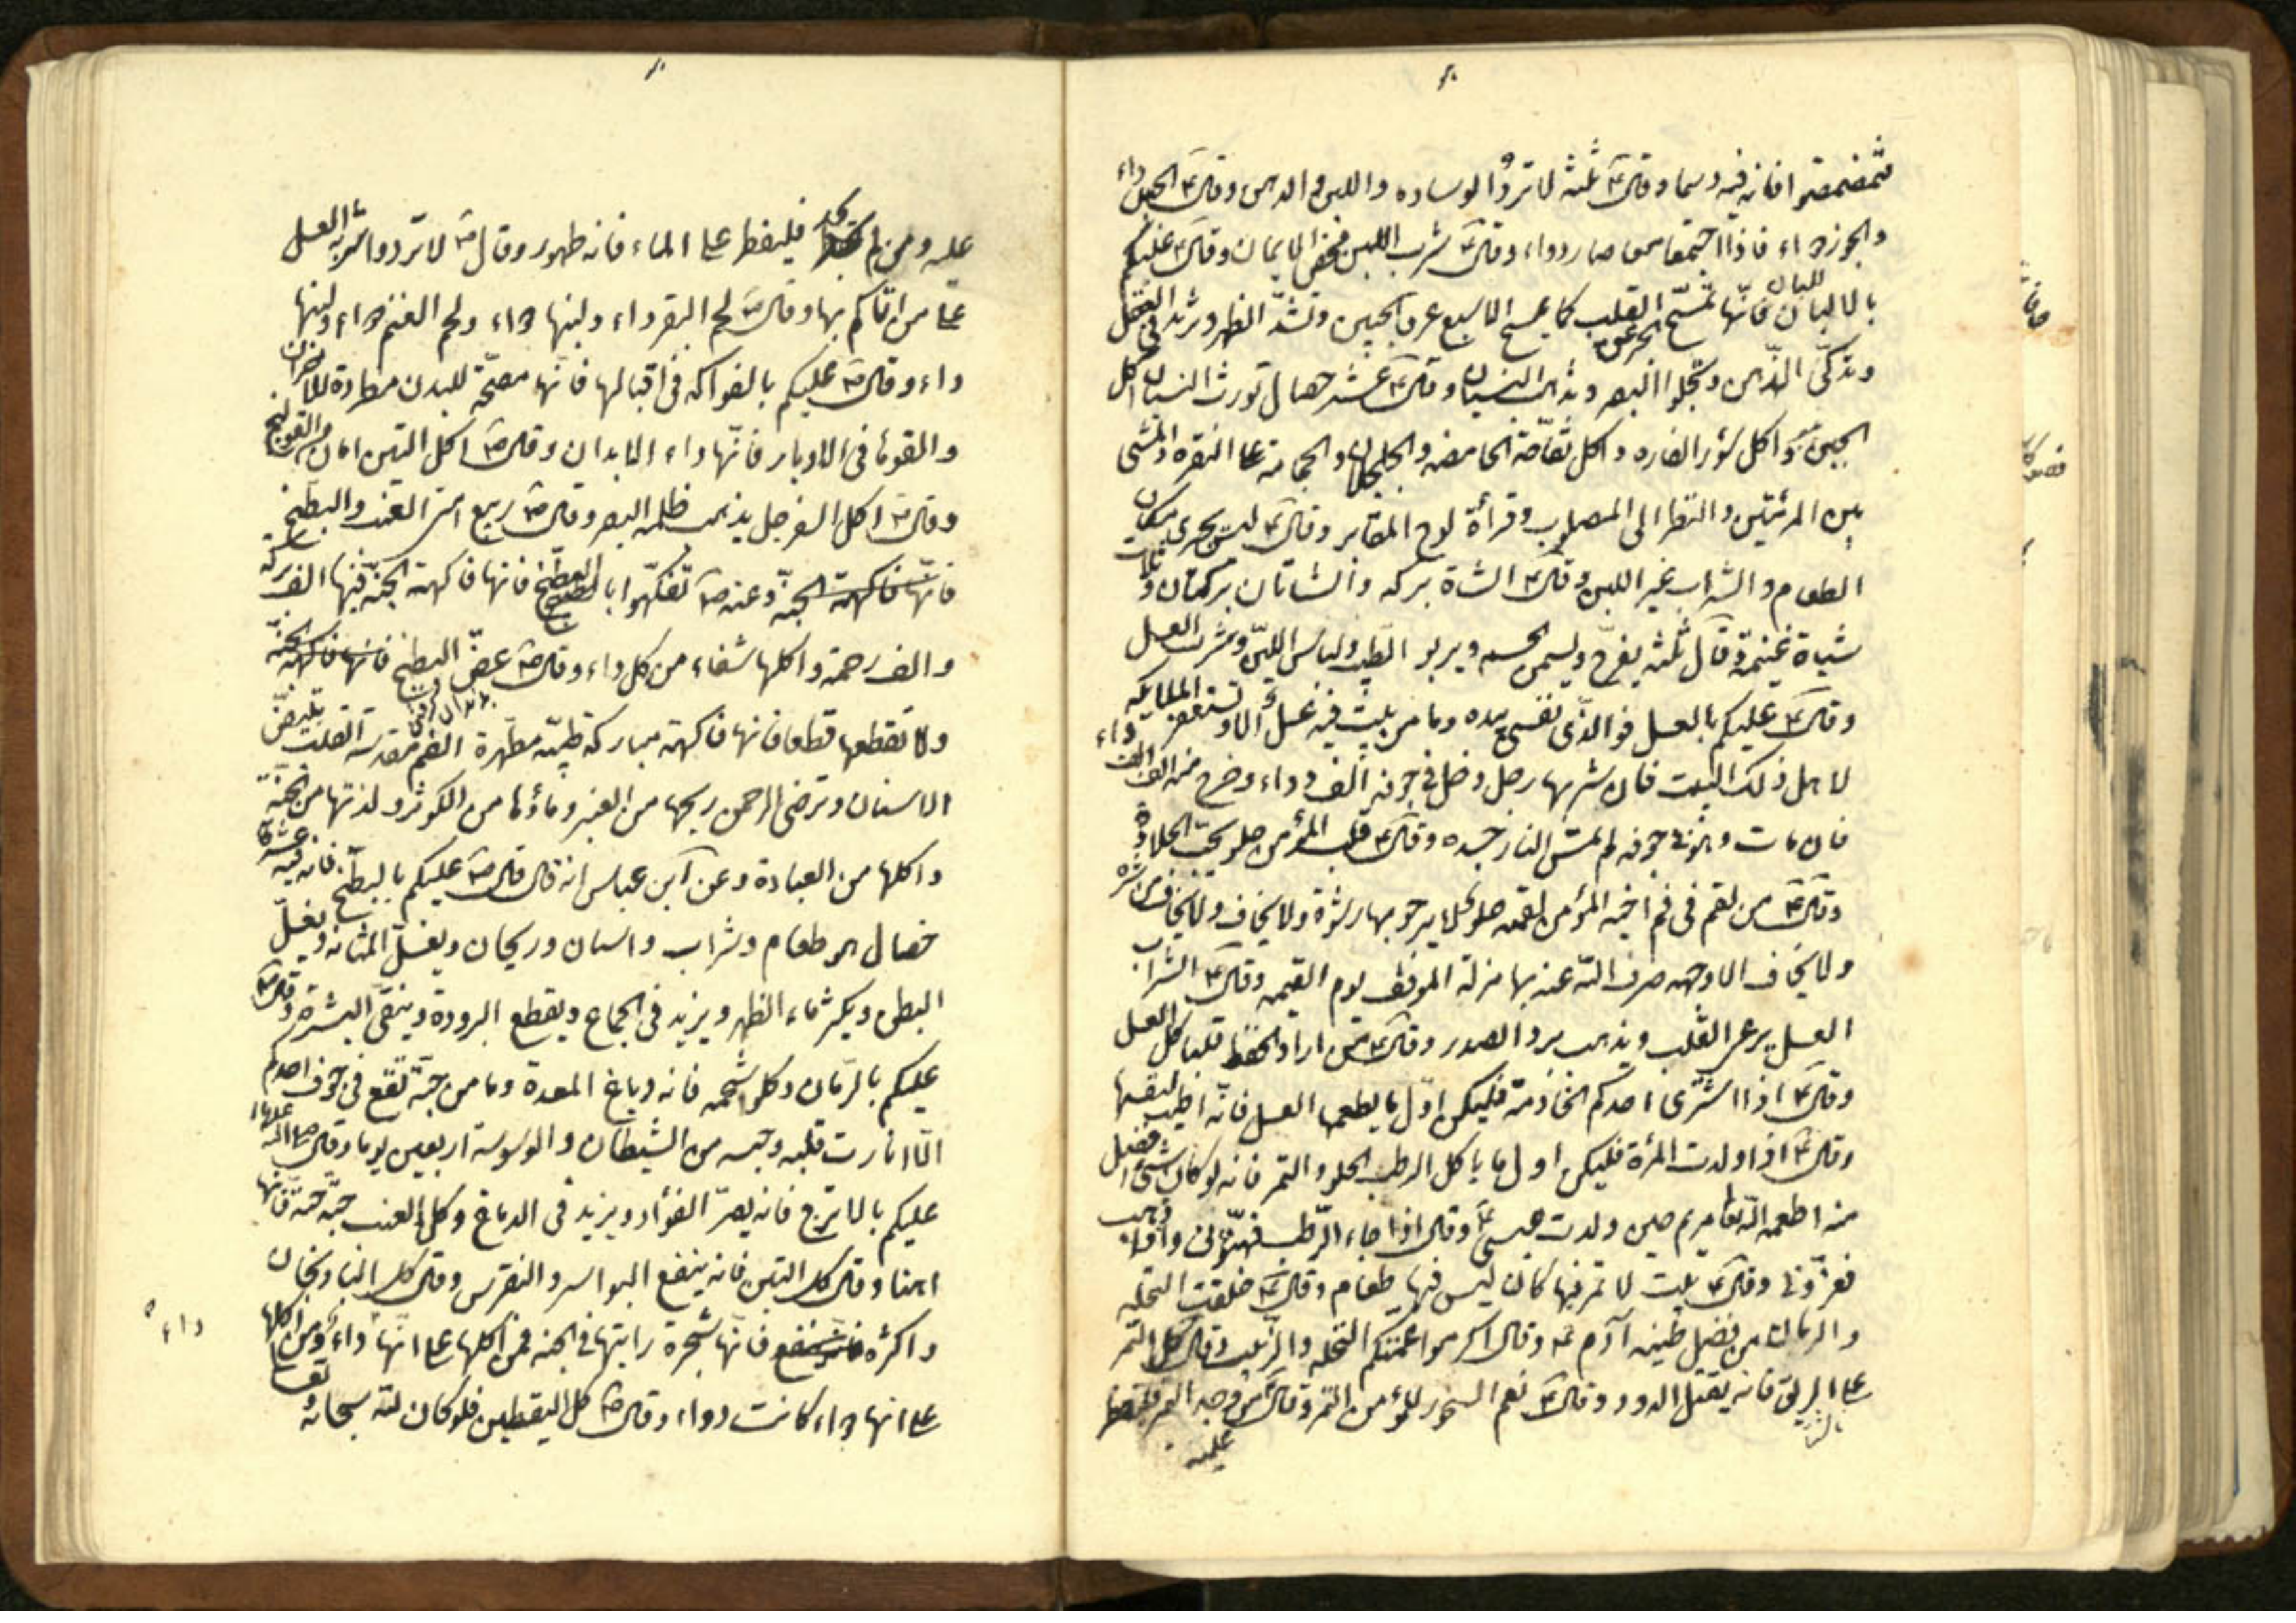 فتمضمضوا فان فيه دسما وقال ع ثلثة لا تردّ الوساده واللبن والدهن وقال ع الجبن داء
والجوز داء فاذا اجتمعا معا صار دواء وقال ع شرب اللبن محض الايمان وقال ع عليكم
بالالبان فانّها تمسّح الحر عن القلب كما يمسح الاصبع عرق الجبين وتشدّ الظهر وتزيد فى العقل
وتذكّى الذّهن وتجلو البصر وتذهب النسيان وقال ع عشر خصال تورث النسيان اكل
الجبن واكل سؤر الفاره واكل تفاحة الحامضه والجلجلان والحجامة على النقره والمشى
بين المرئتين والنظر الى المصلوب وقرأة لوح المقابر وقال ع ليس يجزى مكان
الطعام والشراب غير اللبن وقال ع الشاة بركه والشاتان بركتان وثلاث
شياة غنيمة وقال ثلثة يفرح وليسمن الجسم ويربو الطيب ولباس الليّن وشرب العسل
وقال ع عليكم بالعسل فوالذّى نفسى بيده وما من بيت فيه عسل الاو تستغفر الملايكه
لاهل ذلك البيت فان شربها رجل دخل فى جوفه الف دواء وخرج منه الف الف داء
فان مات وهو فى جوفه لم تمس النار جسده وقال ع قلب المؤمن حلو يحبّ الحلاوة
وقال ع من لقم فى فم اخيه المؤمن لقمه حلو لا يرجو بها رشوة ولا يخاف
ولا يخاف الا وجهه صرف اللّه عنه بها مرارة الموقف يوم القيمه وقال ع الشراب
العسل يرعى القلب ويذهب برد الصدور وقال ع من اراد الحفظ فلياكل العسل
وقال ع اذا اشترى احدكم الخادمة فليكن اوّل ما يطعمها العسل فانّه اطيب لنفسها
وقال ع اذا ولدت المرأة فليكن اول ما ياكل الرطب الحلو والتمر فانه لو كان شئ افضل
منه اطعمه اللّه تعا مريم حين ولدت عيسى ع وقال اذا جاء الرّطب فهنّونى واذا ذهب
فعزّونى وقال ع بيت لا تمر فيها كان ليس فيها طعام وقال ع خلقت النخله
والرمان من فضل طينه آدم ع وقال اكرموا عمّتكم النخله والزّبيب وقال كل التمر
على الريق فانه يقتل الدود وقال ع نعم السحور للمؤمن التمر وقال ع من وجد التمر فليفطر
عليه
عليه ومن لم يجد فليفطر على الماء فانه طهور وقال ص لا تردوا شربة العسل
على من اتاكم بها وقال ص لحم البقر داء ولبنها دواء ولحم الغنم دواء ولبنها
داء وقال ص عليكم بالفواكه فى اقبالها فانّها مصحّة للبدن مطردة للاحزان
والقوها فى الادبار فانّها داء الابدان وقال ص اكل التين امان من القولنج
وقال ص اكل السفرجل يذهب ظلمه البصر وقال ص ربيع امتى العنب والبطيخ
فانّها فاكهة الجنّة وعنه ص تفكّهوا بالبطيخ فانها فاكهة الجنّة فيها الف بركة
والف رحمة واكلها شفاء من كل داء وقال ص عضّ البطيخ فانها فاكهة الجنّة
ولا تقطعها قطعا فانها فاكهة مباركة طيّبة مطهّرة الفم مقدسة القلب تبيض
الاسنان وترضى الرحمن ريحها من العنبر وماؤها من الكوثر ولذتها من الجنّة
واكلها من العبادة وعن ابن عباس انه قال قال ص عليكم بالبطيخ فانه فيه عشر
خصال هو طعام وشراب واسنان وريحان ويغسل المثانه ويغسل
البطن ويكثر ماء الظهر ويزيد فى الجماع ويقطع البرودة وينقى البشرة وقال ص
عليكم بالرّمان وكلوا شحمه فانه دباغ المعدة وما من حبّة تقع فى جوف احدكم
الّا انارت قلبه وحبسه من الشيطان والوسوسة اربعين يوما وقال صلى اللّه عليه
عليكم بالاترج فانه يصرّ الفؤاد ويزيد فى الدماغ وكل العنب حبّة حبّة فانّها
اهنا وقال كل التين فانه ينفع البواسر والنقرس وقال كل الباذنجان
واكثره فانّها شجرة رايتها فى الجنه فمن اكلها على انّها داء ومن اكلها
على انها دواء كانت دواء وقال ص كل اليقطين فلو كان للّه سبحانه وتعا
داء